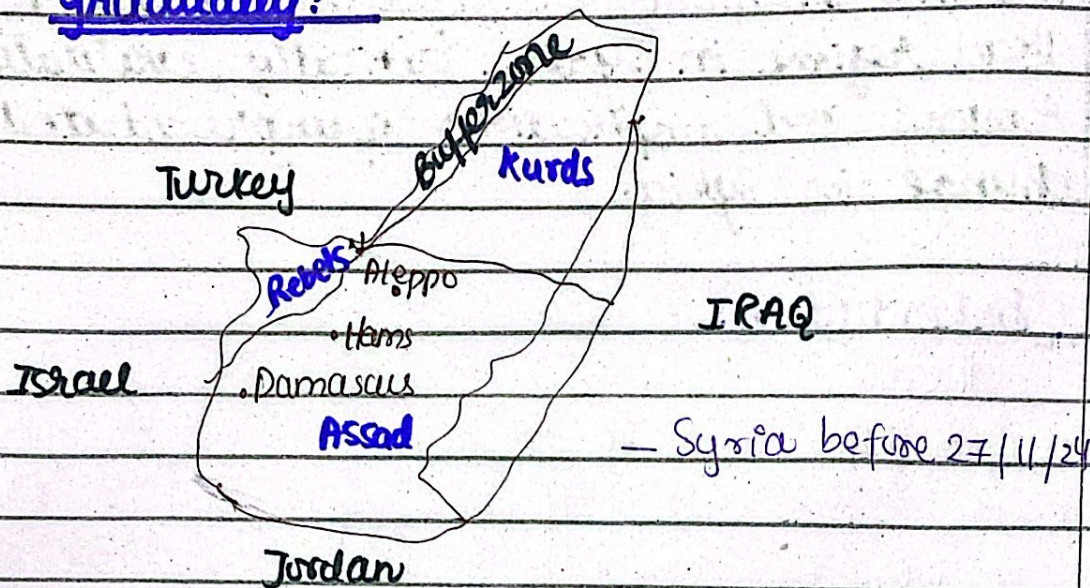 Buffer zone
Kurds
Turkey
Rebels
Aleppo
IRAQ
Homs
Israel
Damascus
Assad
— Syria before 27/11/24
Jordan